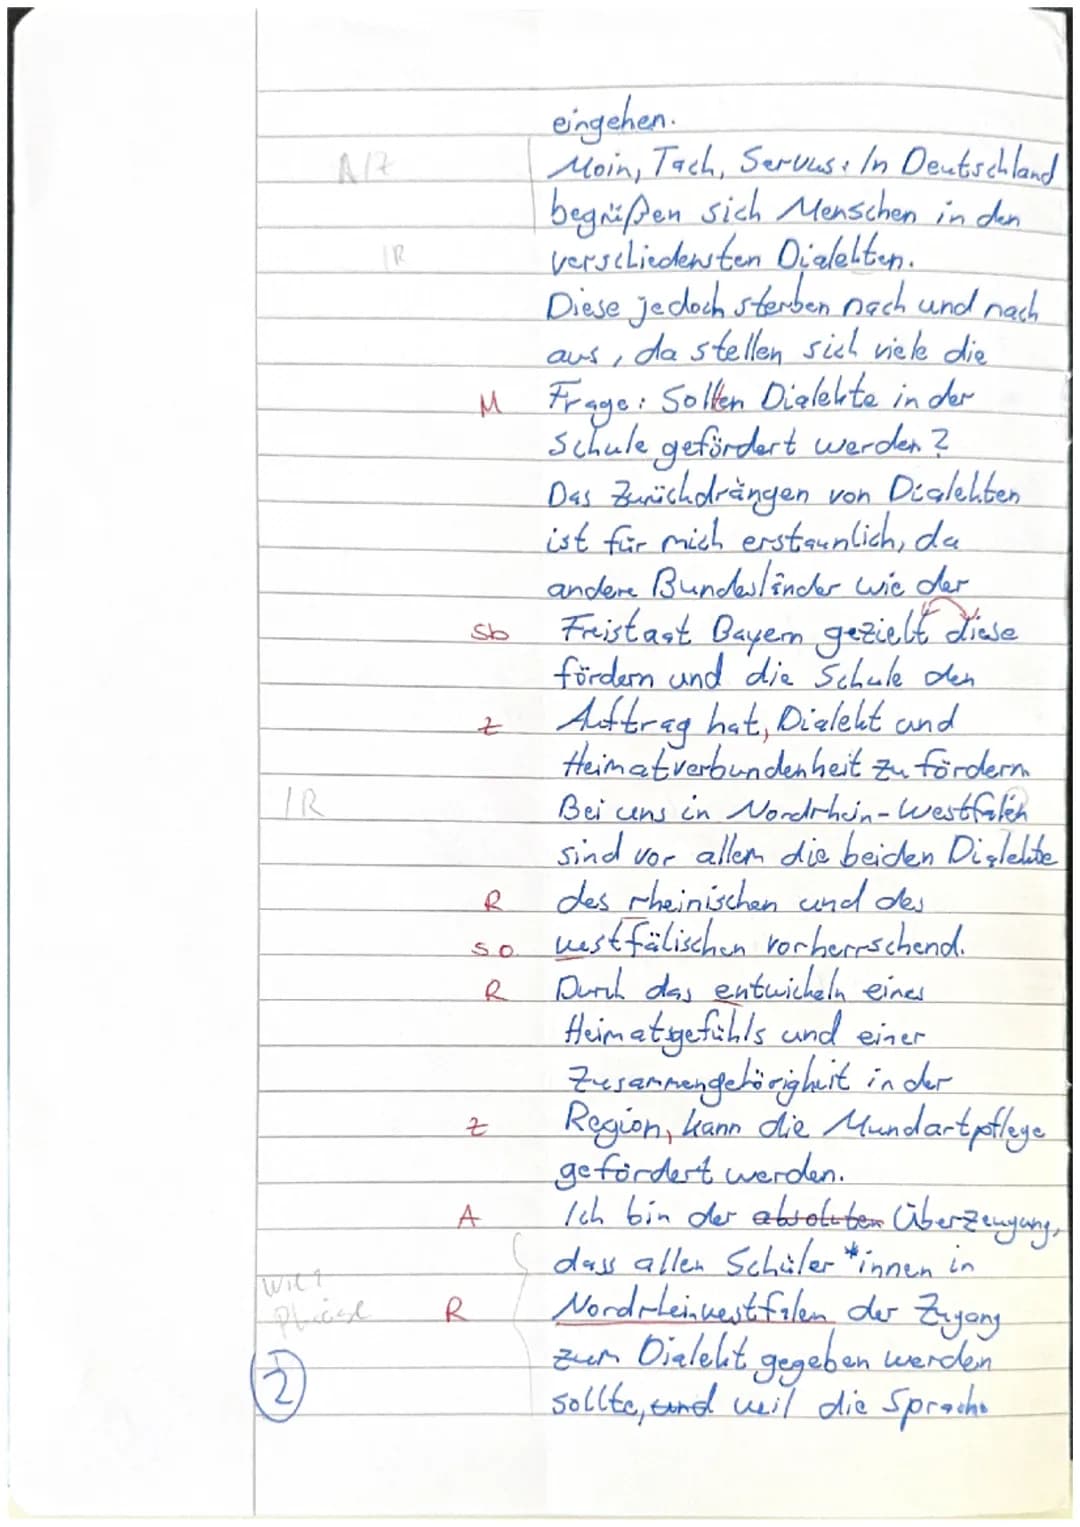 eingehen.
A/Z Moin, Tach, Servus: In Deutschland
begrüßen sich Menschen in den
IR verschiedensten Dialekten.
Diese jedoch sterben nach und nach
aus, da stellen sich viele die
M Frage: Sollten Dialekte in der
Schule gefördert werden?
Das Zurückdrängen von Dialekten
ist für mich erstaunlich, da
andere Bundesländer wie der
Sb Freistaat Bayern gezielt diese
fördern und die Schule den
Z Auftrag hat, Dialekt und
Heimatverbundenheit zu fördern.
IR Bei uns in Nordrhein-Westfalen
sind vor allem die beiden Dialekte
R des rheinischen und des
s.o. westfälischen vorherrschend.
R Durch das entwickeln eines
Heimatsgefühls und einer
Zusammengehörigkeit in der
Z Region, kann die Mundartpflege
gefördert werden.
A Ich bin der absoluten Überzeugung,
dass allen Schüler*innen in
Wie?
Phrase R Nordrheinwestfalen der Zugang
zum Dialekt gegeben werden
2 sollte, und weil die Sprache